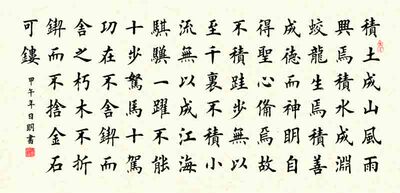 積土成山風雨
興焉積水成淵
蛟龍生焉積善
成德而神明自
得聖心備焉故
不積跬步無以
至千裏不積小
流無以成江海
騏驥一躍不能
十步駑馬十駕
功在不舍鍥而
舍之朽木不折
鍥而不捨金石
可鏤
甲午年日明書